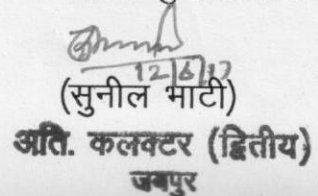 12/6/17
(सुनील भाटी)
अति. कलक्टर (द्वितीय)
जयपुर